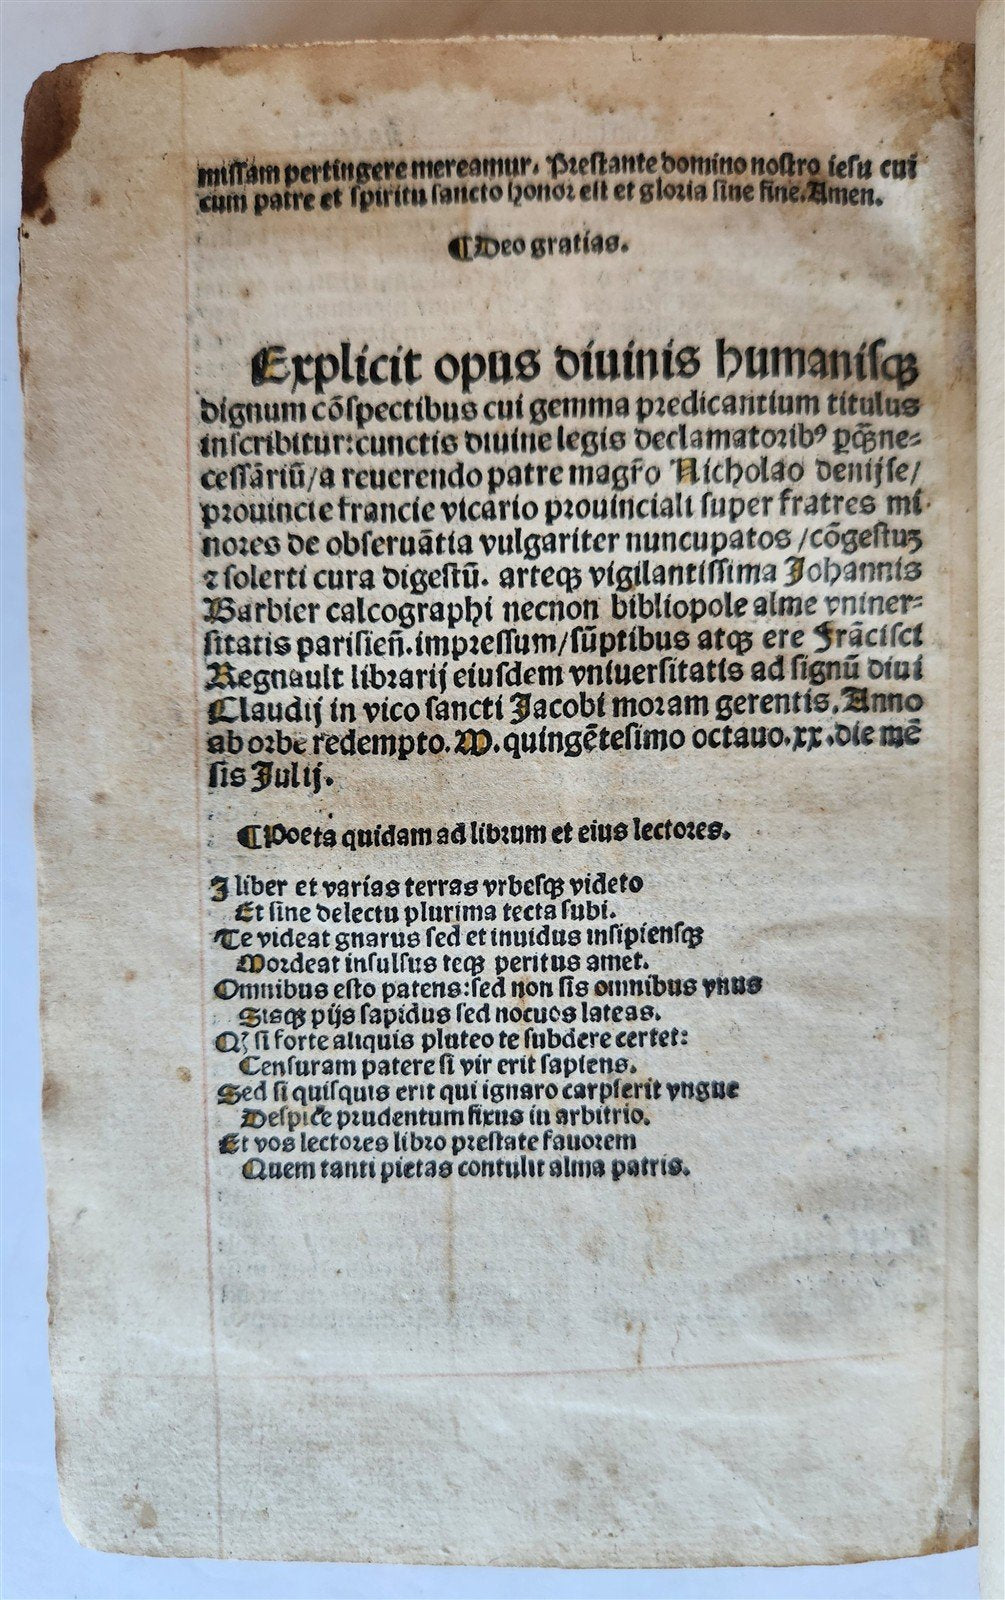 missam pertingere mereamur. Prestante domino nostro iesu cui
cum patre et spiritu sancto honor est et gloria sine fine. Amen.
¶ Deo gratias.
Explicit opus diuinis humanisq3
dignum cõspectibus cui gemma predicantium titulus
inscribitur: cunctis diuine legis declamatorib⁹ ꝑq̃3ne-
cessãriũ/a reuerendo patre magr̃o Nicholao denijse/
prouincie francie vicario prouinciali super fratres mi
nores de obseruãtia vulgariter nuncupatos /cõgestuʒ
⁊ solerti cura digestũ. arteq3 vigilantissima Johannis
Barbier calcographi necnon bibliopole alme vniner-
sitatis parisieñ. impressum/sũptibus atq3 ere Frãcisci
Regnault librarij eiusdem vniuersitatis ad signũ diui
Claudij in vico sancti Jacobi moram gerentis. Anno
ab orbe redempto. M. quingẽtesimo octauo. xx. die mẽ
sis Julij.
¶ Poeta quidam ad librum et eius lectores.
I liber et varias terras vrbesq3 videto
Et sine delectu plurima tecta subi.
Te videat gnarus sed et inuidus insipiensq3
Mordeat insulsus teq3 peritus amet.
Omnibus esto patens: sed non sis omnibus vnus
Sisq3 pijs sapidus sed nocuos lateas.
Qʒ si forte aliquis pluteo te subdere certet:
Censuram patere si vir erit sapiens.
Sed si quisquis erit qui ignaro carpserit vngue
Despice prudentum fixus in arbitrio.
Et vos lectores libro prestate fauorem
Quem tanti pietas contulit alma patris.